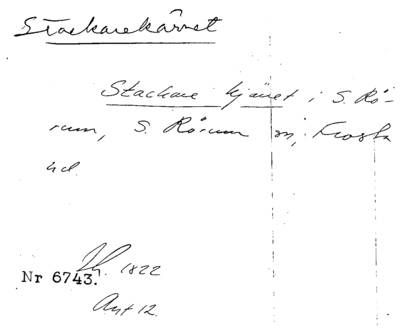 Stackarekärret
Stackare kjäret i S. Rö-
rum, S. Rörum sn, Frosta
hd.
Lh. 1822
Nr 6743.
Avt 12.